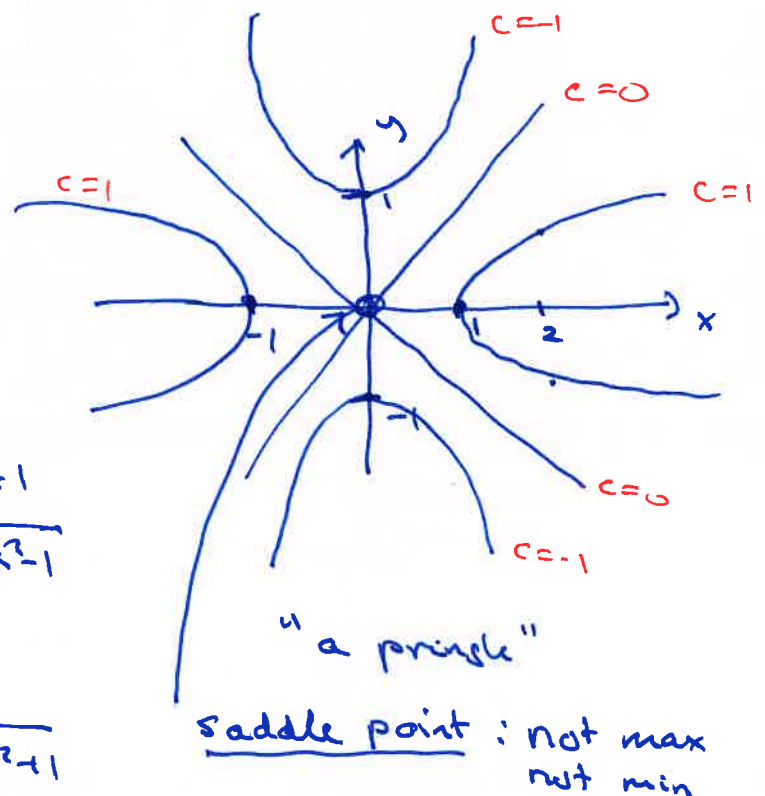 c=-1
c=0
y
c=1
1
c=1
-1
1
2
x
-1
c=0
c=-1
x²-1
"a pringle"
saddle point : not max
not min
²+1